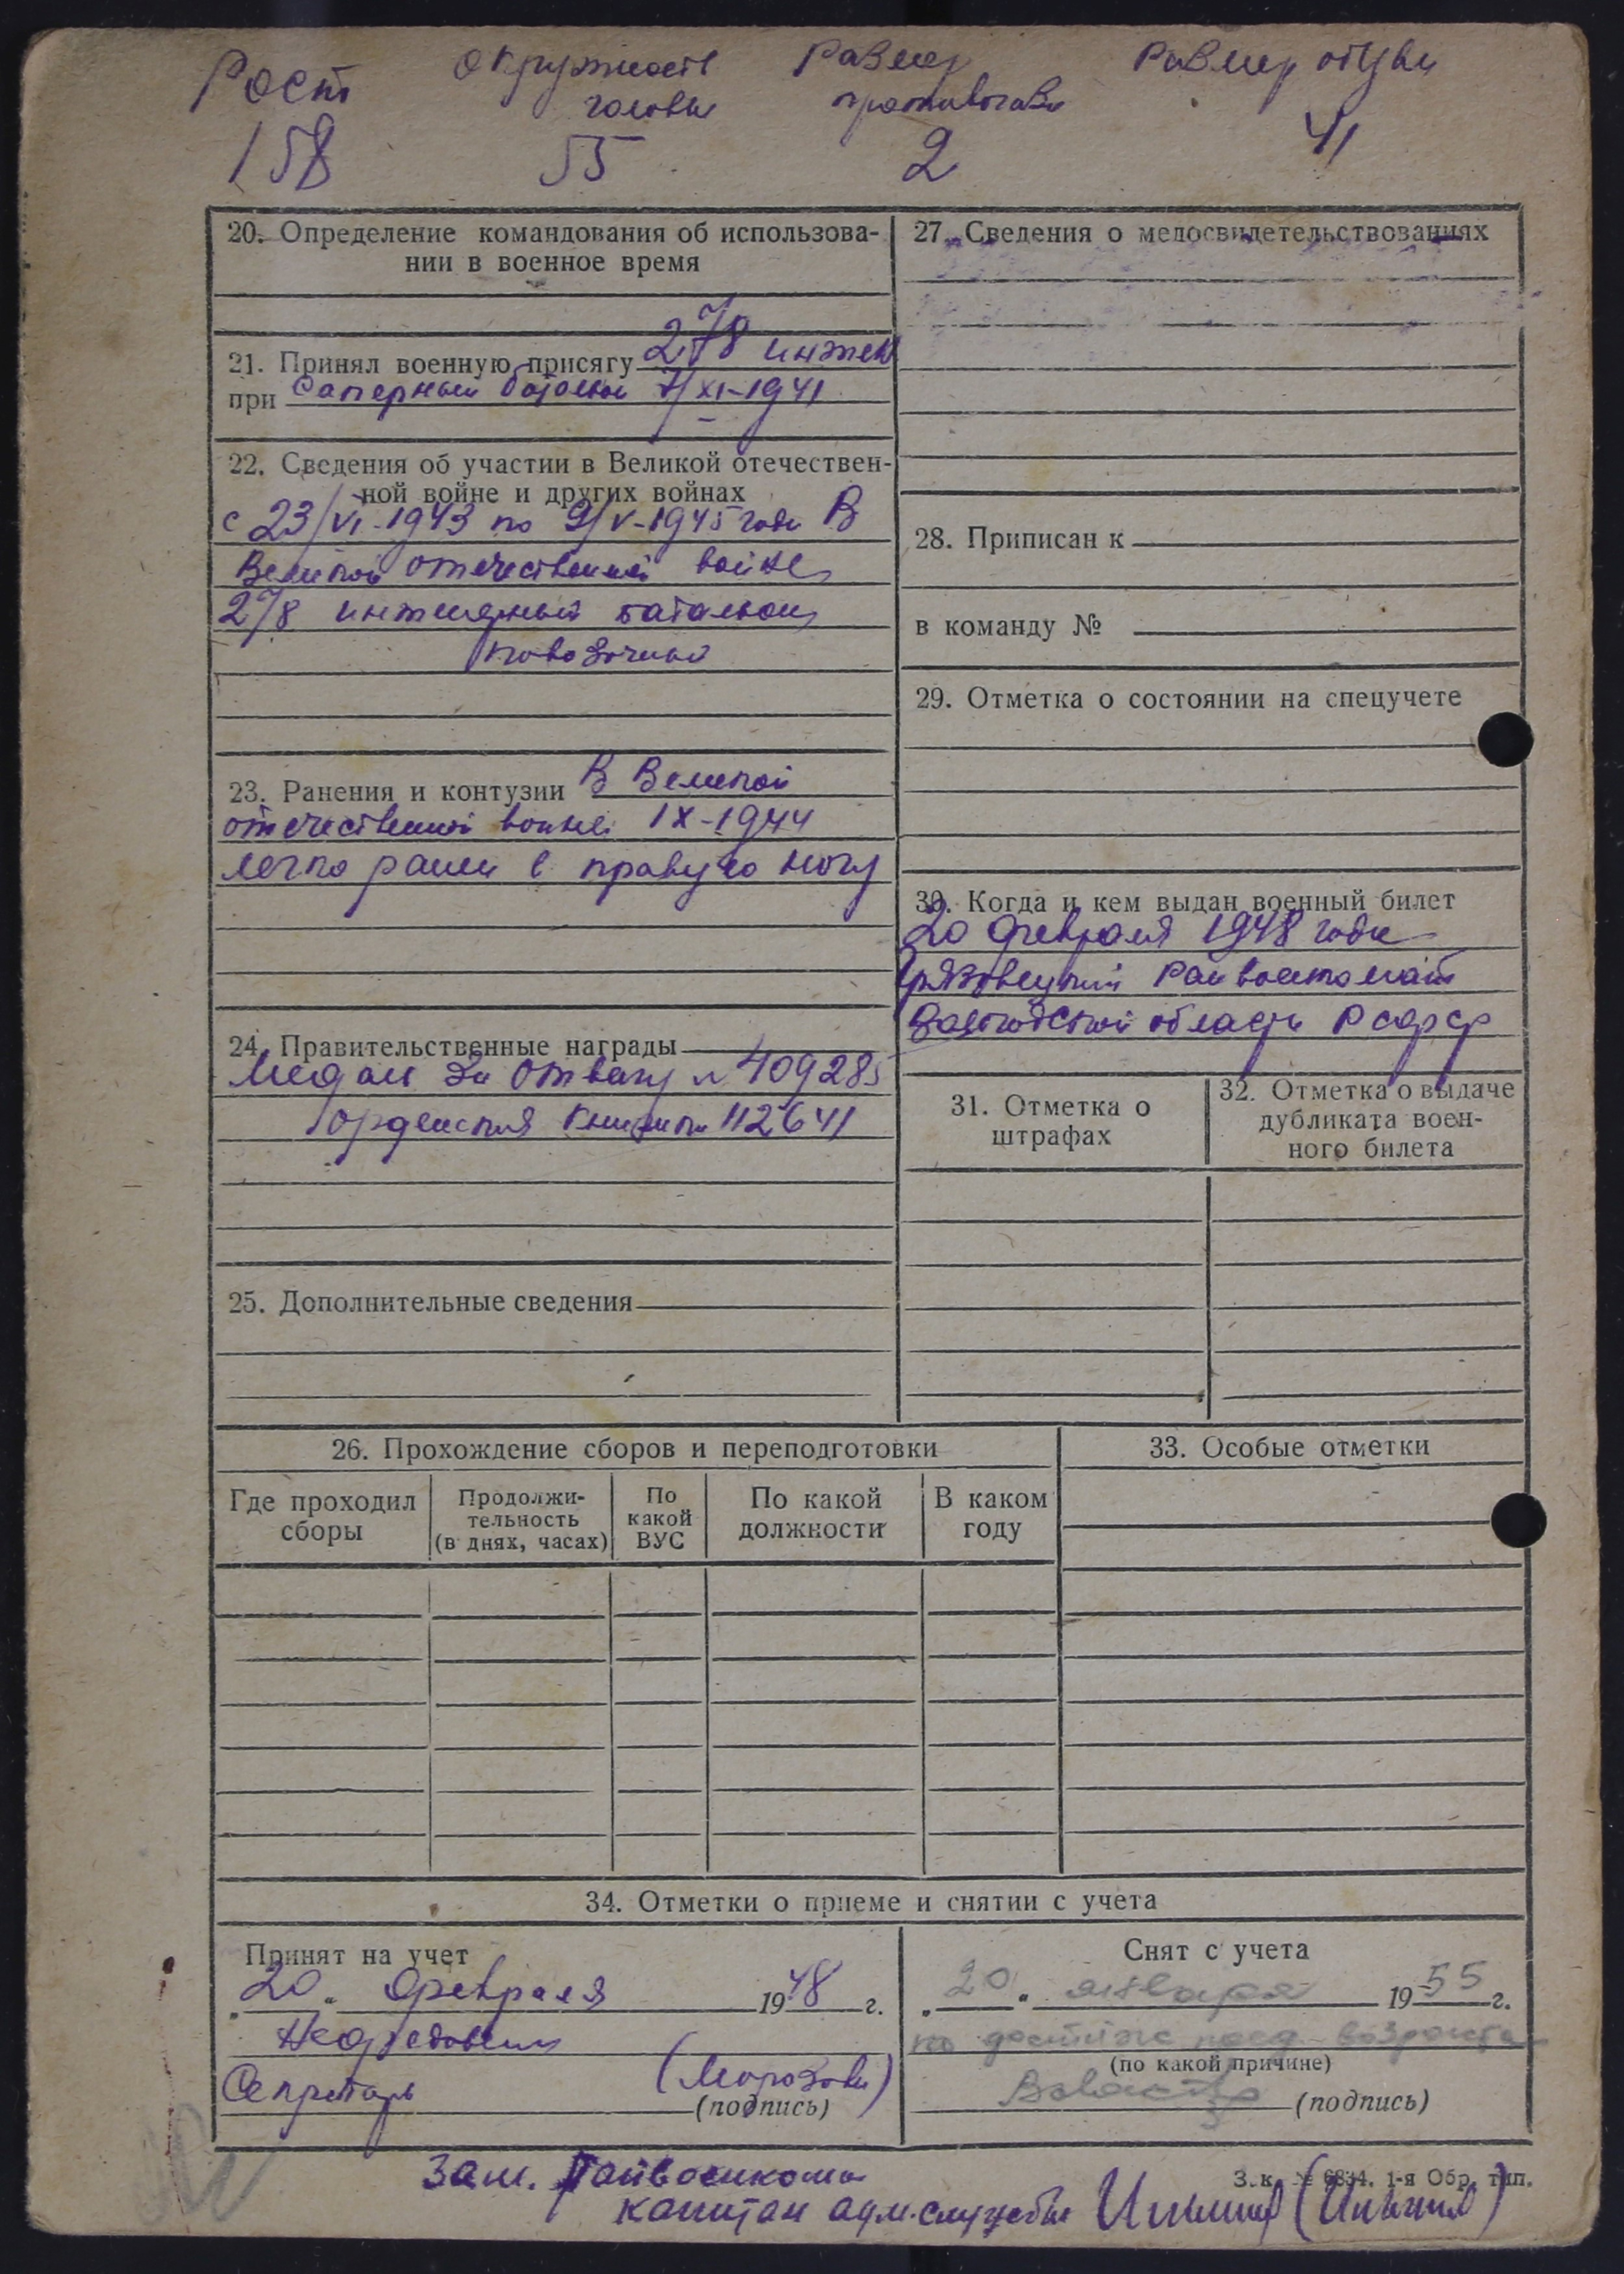 Рост Окружность Размер Размер обуви
головы противогаза
158 55 2 41
20. Определение командования об использова-
нии в военное время
21. Принял военную присягу 278 инжен
при саперный батальон 7/XI-1941
22. Сведения об участии в Великой отечествен-
ной войне и других войнах
с 23/VI-1943 по 9/V-1945 года В
Великой отечественной войне
278 инженерный батальон
повозочный
23. Ранения и контузии В Великой
отечественной войне IX-1944
легко ранен в правую ногу
24. Правительственные награды
Медаль За Отвагу № 409285
орденская книжка 112641
25. Дополнительные сведения
27. Сведения о медосвидетельствованиях
28. Приписан к
в команду №
29. Отметка о состоянии на спецучете
30. Когда и кем выдан военный билет
20 февраля 1948 года
Грязовецкий Райвоенкомат
Вологодской области РСФСР
31. Отметка о
штрафах
32. Отметка о выдаче
дубликата воен-
ного билета
26. Прохождение сборов и переподготовки
Где проходил
сборы
Продолжи-
тельность
(в днях, часах)
По
какой
ВУС
По какой
должности
В каком
году
33. Особые отметки
34. Отметки о приеме и снятии с учета
Принят на учет
„20“ февраля 1948 г.
Секретарь (Морозова)
(подпись)
Снят с учета
„20“ января 1955 г.
по достиж пред возраста
(по какой причине)
(подпись)
Зам. Райвоенкома
капитан адм. службы
Зак. № 6834. 1-я Обр. тип.